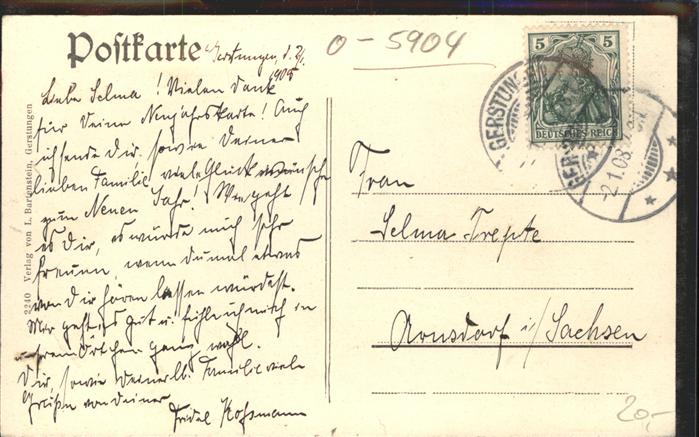 Postkarte
Gerstungen, d. 2/1.
1908
0-5904
Liebe Selma! Vielen Dank
für Deine Neujahrskarte! Auch
ich sende Dir, sowie Deiner
lieben Familie viele Glückwünsche
zum Neuen Jahr! Wie geht
es Dir, es würde mich sehr
freuen, wenn Du mal etwas
von Dir hören lassen würdest.
Mir geht es gut u. fühle ich mich in
Örtchen ganz wohl.
Dir, sowie Deiner lb. Familie viele
Grüße von Deiner
Fridel Hofmann
2240 Verlag von L. Bartenstein, Gerstungen
5 5
DEUTSCHES REICH
GERSTUNGEN
2.1.08.
Frau
Selma Trepte
Arnsdorf i/Sachsen
20,-